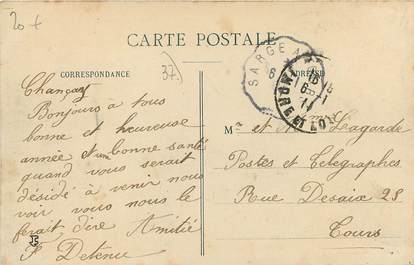 20 f
CARTE POSTALE
CORRESPONDANCE
37
ADRESSE
SARGE A
6
MONT
16
6-1
14
RE ET LOI
Chançay
Bonjour à tous
bonne et heureuse
année et bonne santé
quand vous serait
désidé à venir nous
voir vous nous le
ferait dire Amitié
F Detenu
Mr et Lagarde
Postes et Télégraphes
Rue Desaix 28
Tours